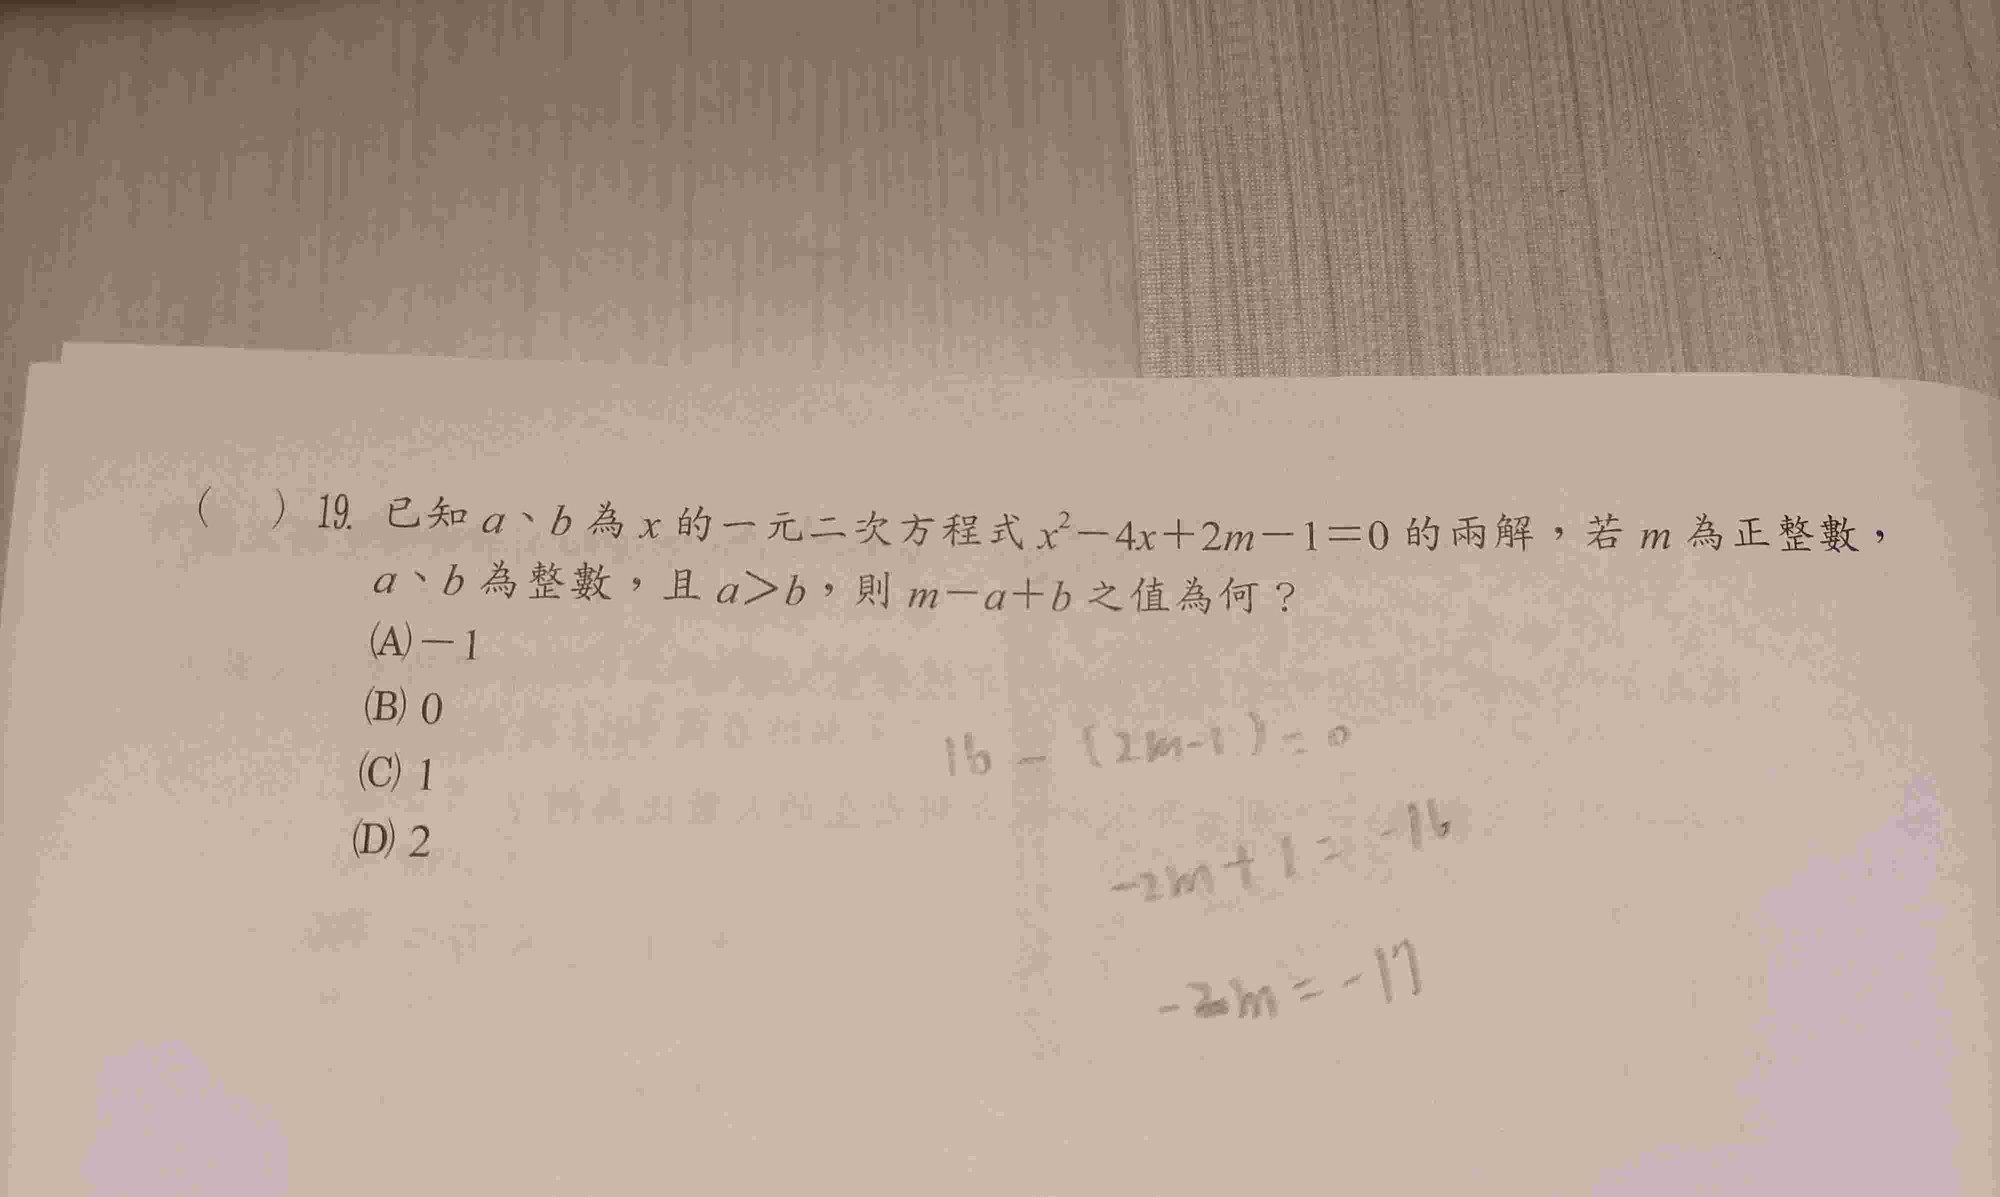 (　) 19. 已知 a、b 為 x 的一元二次方程式 x²－4x＋2m－1＝0 的兩解，若 m 為正整數，
a、b 為整數，且 a＞b，則 m－a＋b 之值為何？
(A)－1
(B) 0
(C) 1
(D) 2
16 - (2m-1) = 0
-2m + 1 = -16
-2m = -17